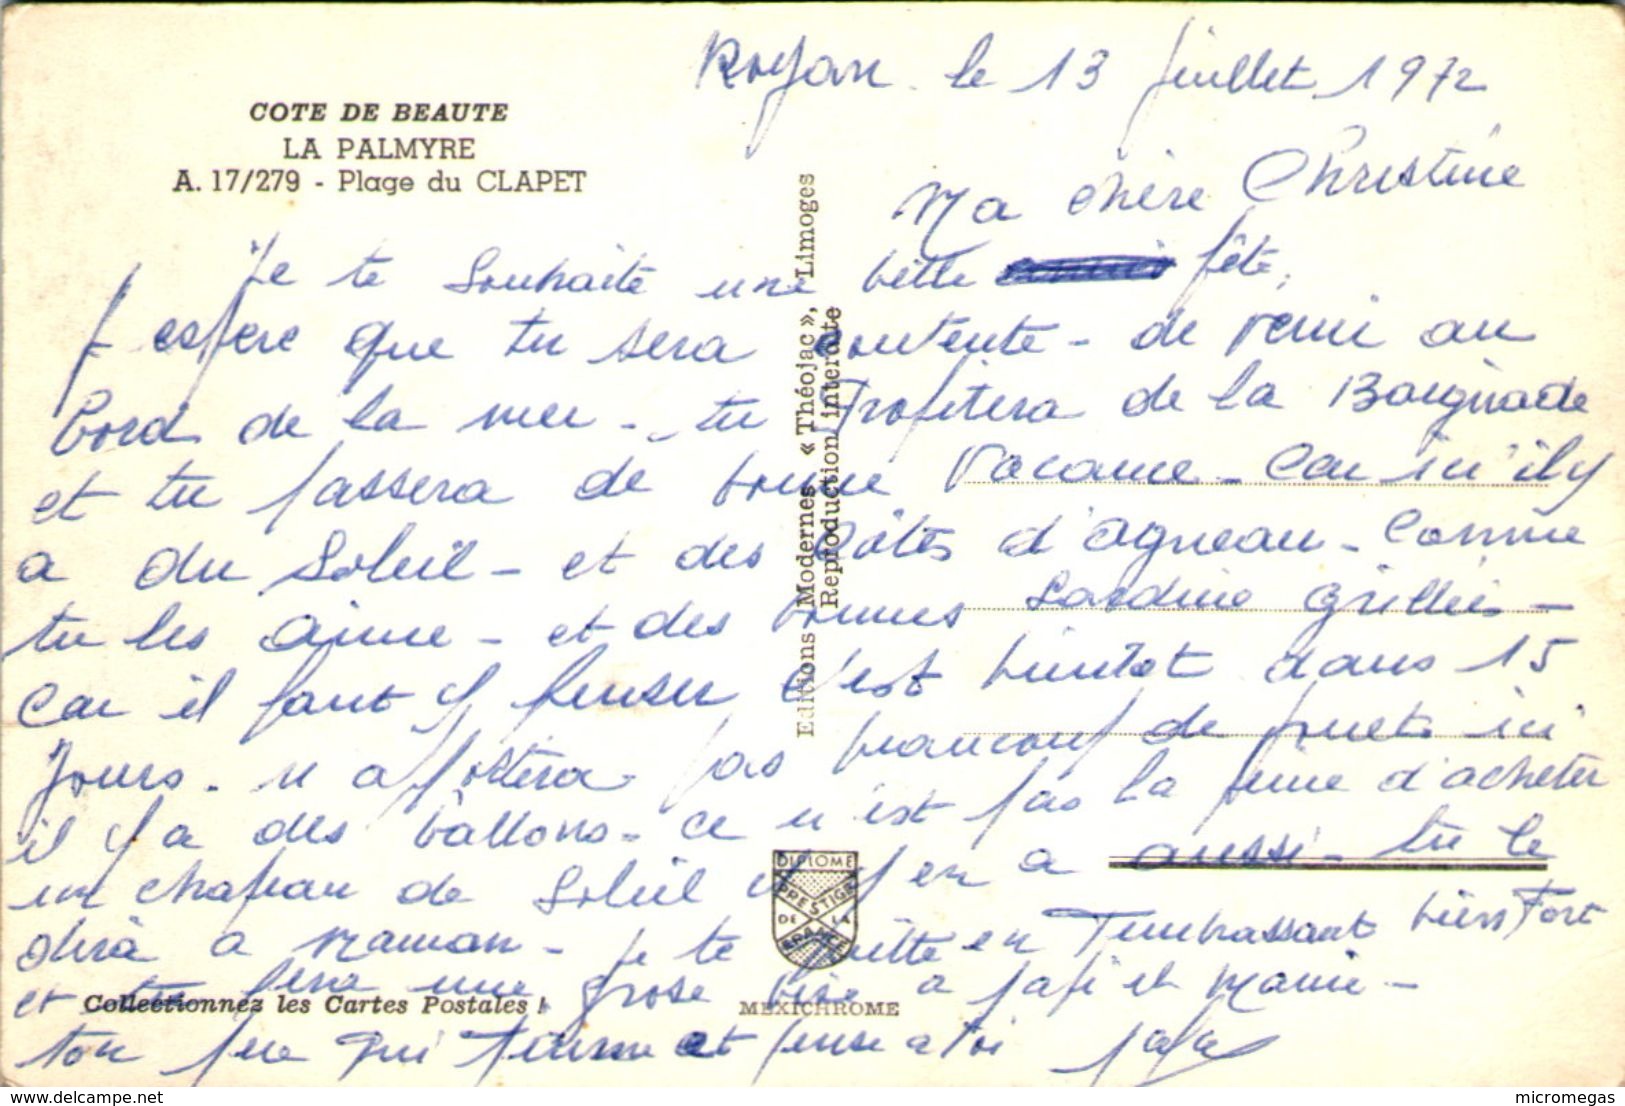 Royan. le 13 juillet 1972
COTE DE BEAUTE
LA PALMYRE
A. 17/279 - Plage du CLAPET
Ma chère Christine
Je te souhaite une belle fête,
J espere que tu sera contente - de veni au
bord de la mer - tu profitera de la Baignade
et tu passera de bonne vacance - car ici il y
a du soleil - et des côtes d'agneau - comme
tu les aime - et des bonnes sardine grillées -
car il faut y penser c'est bientot dans 15
jours - n aportera pas beaucoup de jouets ici
il y a des ballons - ce n'est pas la peine d'acheter
un chapeau de soleil il y en a aussi - tu le
dira a maman - je te quitte en t'embrassant bien fort
et tu fera une grose bise a papi et mamie -
ton père qui t'aime et pense a toi papa
Editions Modernes « Théojac », Limoges
Reproduction interdite
DIPLOME
PRESTIGE
DE LA
FRANCE
Collectionnez les Cartes Postales !
MEXICHROME
delcampe.net
micromegas